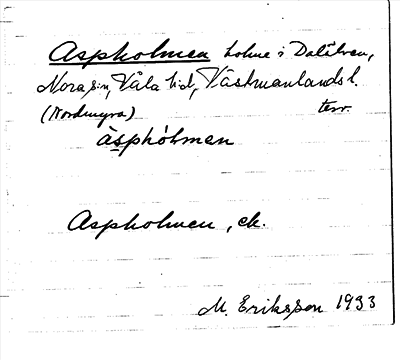 Aspholmen holme i Dalälven,
Nora sn, Våla hd, Västmanlands l.
(Nordmyra) terr.
àsphòlmen
Aspholmen, ek.
M. Eriksson 1933